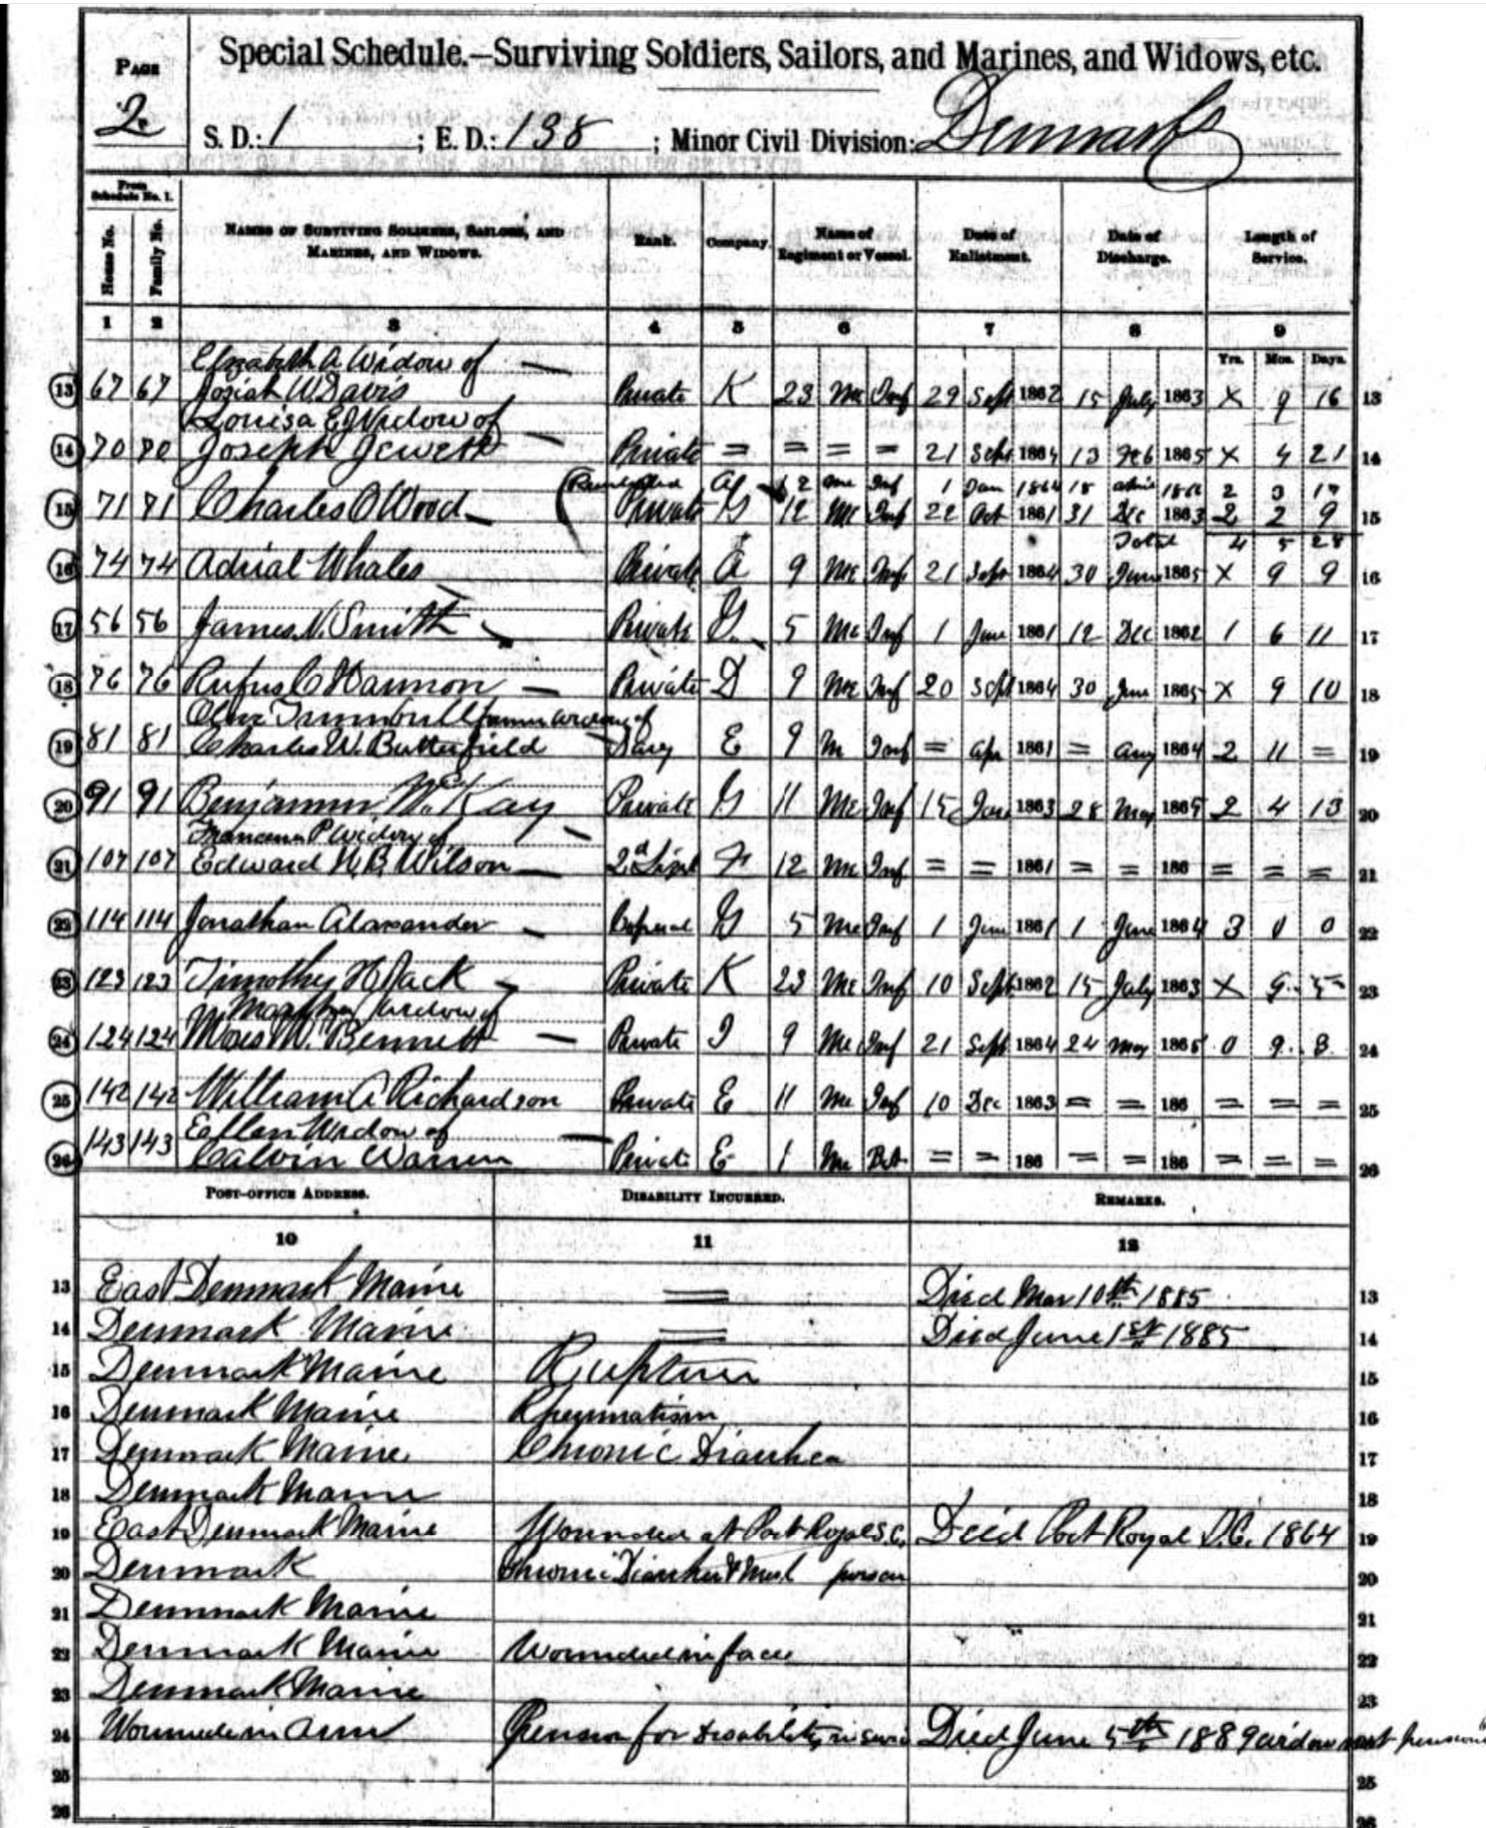 PAGE
2.
Special Schedule.—Surviving Soldiers, Sailors, and Marines, and Widows, etc.
S. D.: 1 ; E. D.: 138 ; Minor Civil Division: Denmark
From Schedule No. 1.
House No. Family No. NAMES OF SURVIVING SOLDIERS, SAILORS, AND MARINES, AND WIDOWS. Rank. Company. Name of Regiment or Vessel. Date of Enlistment. Date of Discharge. Length of Service.
1 2 3 4 5 6 7 8 9
Yrs. Mos. Days.
Elizabeth A Widow of
13 67 67 Josiah W Davis Private K 23 Me Inf 29 Sept 1862 15 July 1863 X 9 16 13
Louisa E Widow of
14 70 70 Joseph Jewett Private = = = = 21 Sept 1864 13 Feb 1865 X 4 21 14
Reenlisted 12 Me Inf 1 Jan 1864 18 April 1866 2 3 17
15 71 71 Charles O Wood Private G 12 Me Inf 22 Oct 1861 31 Dec 1863 2 2 9 15
Total 4 5 28
16 74 74 Adrial Whales Private A 9 Me Inf 21 Sept 1864 30 June 1865 X 9 9 16
17 56 56 James N. Smith Private G. 5 Me Inf 1 June 1861 12 Dec 1862 1 6 11 17
18 76 76 Rufus C Harmon Private D 9 Me Inf 20 Sept 1864 30 June 1865 X 9 10 18
Olive Trumbull former widow of
19 81 81 Charles W. Butterfield E 9 M Inf = Apr 1861 = Aug 1864 2 11 = 19
20 91 91 Benjamin McKay Private G 11 Me Inf 15 Jan 1863 28 May 1865 2 4 13 20
P Widow of
21 107 107 Edward B. Wilson 2d Lieut F 12 Me Inf = = 1861 = = 186 = = = 21
22 114 114 Jonathan Alaxander Corporal G 5 Me Inf 1 June 1861 1 June 1864 3 0 0 22
23 123 123 Timothy H Jack Private K 23 Me Inf 10 Sept 1862 15 July 1863 X 9 5 23
Widow of
24 124 124 M. Bennett Private I 9 Me Inf 21 Sept 1864 24 May 1865 0 9 3 24
25 142 142 William A Richardson Private E 11 Me Inf 10 Dec 1863 = = 186 = = = 25
Eallen Widow of
26 143 143 Calvin Warren Private E 1 Me Bat = = 186 = = 186 = = = 26
POST-OFFICE ADDRESS. DISABILITY INCURRED. REMARKS.
10 11 12
13 East Denmark Maine = Died Mar 10th 1885 13
14 Denmark Maine = Died June 1st 1885 14
15 Denmark Maine Rupture 15
16 Denmark Maine Rheumatism 16
17 Denmark Maine Chronic Diarrhea 17
18 Denmark Maine 18
19 East Denmark Maine Wounded at Port Royal S.C. Died Port Royal S.C. 1864 19
20 Denmark Chronic Diarrhea & 20
21 Denmark Maine 21
22 Denmark Maine Wounded in face 22
23 Denmark Maine 23
24 Wounded in arm Pension for Disability in Died June 5th 1889 widow not 24
25 25
26 26